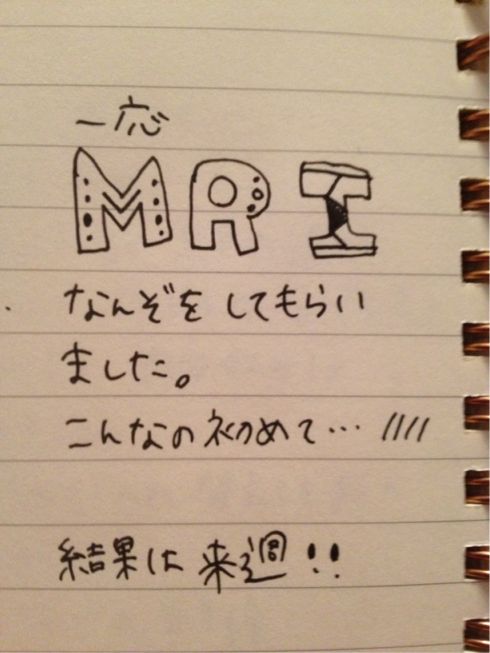 一応
MRI
なんぞをしてもらい
ました。
こんなの初めて… ////
結果は来週!!